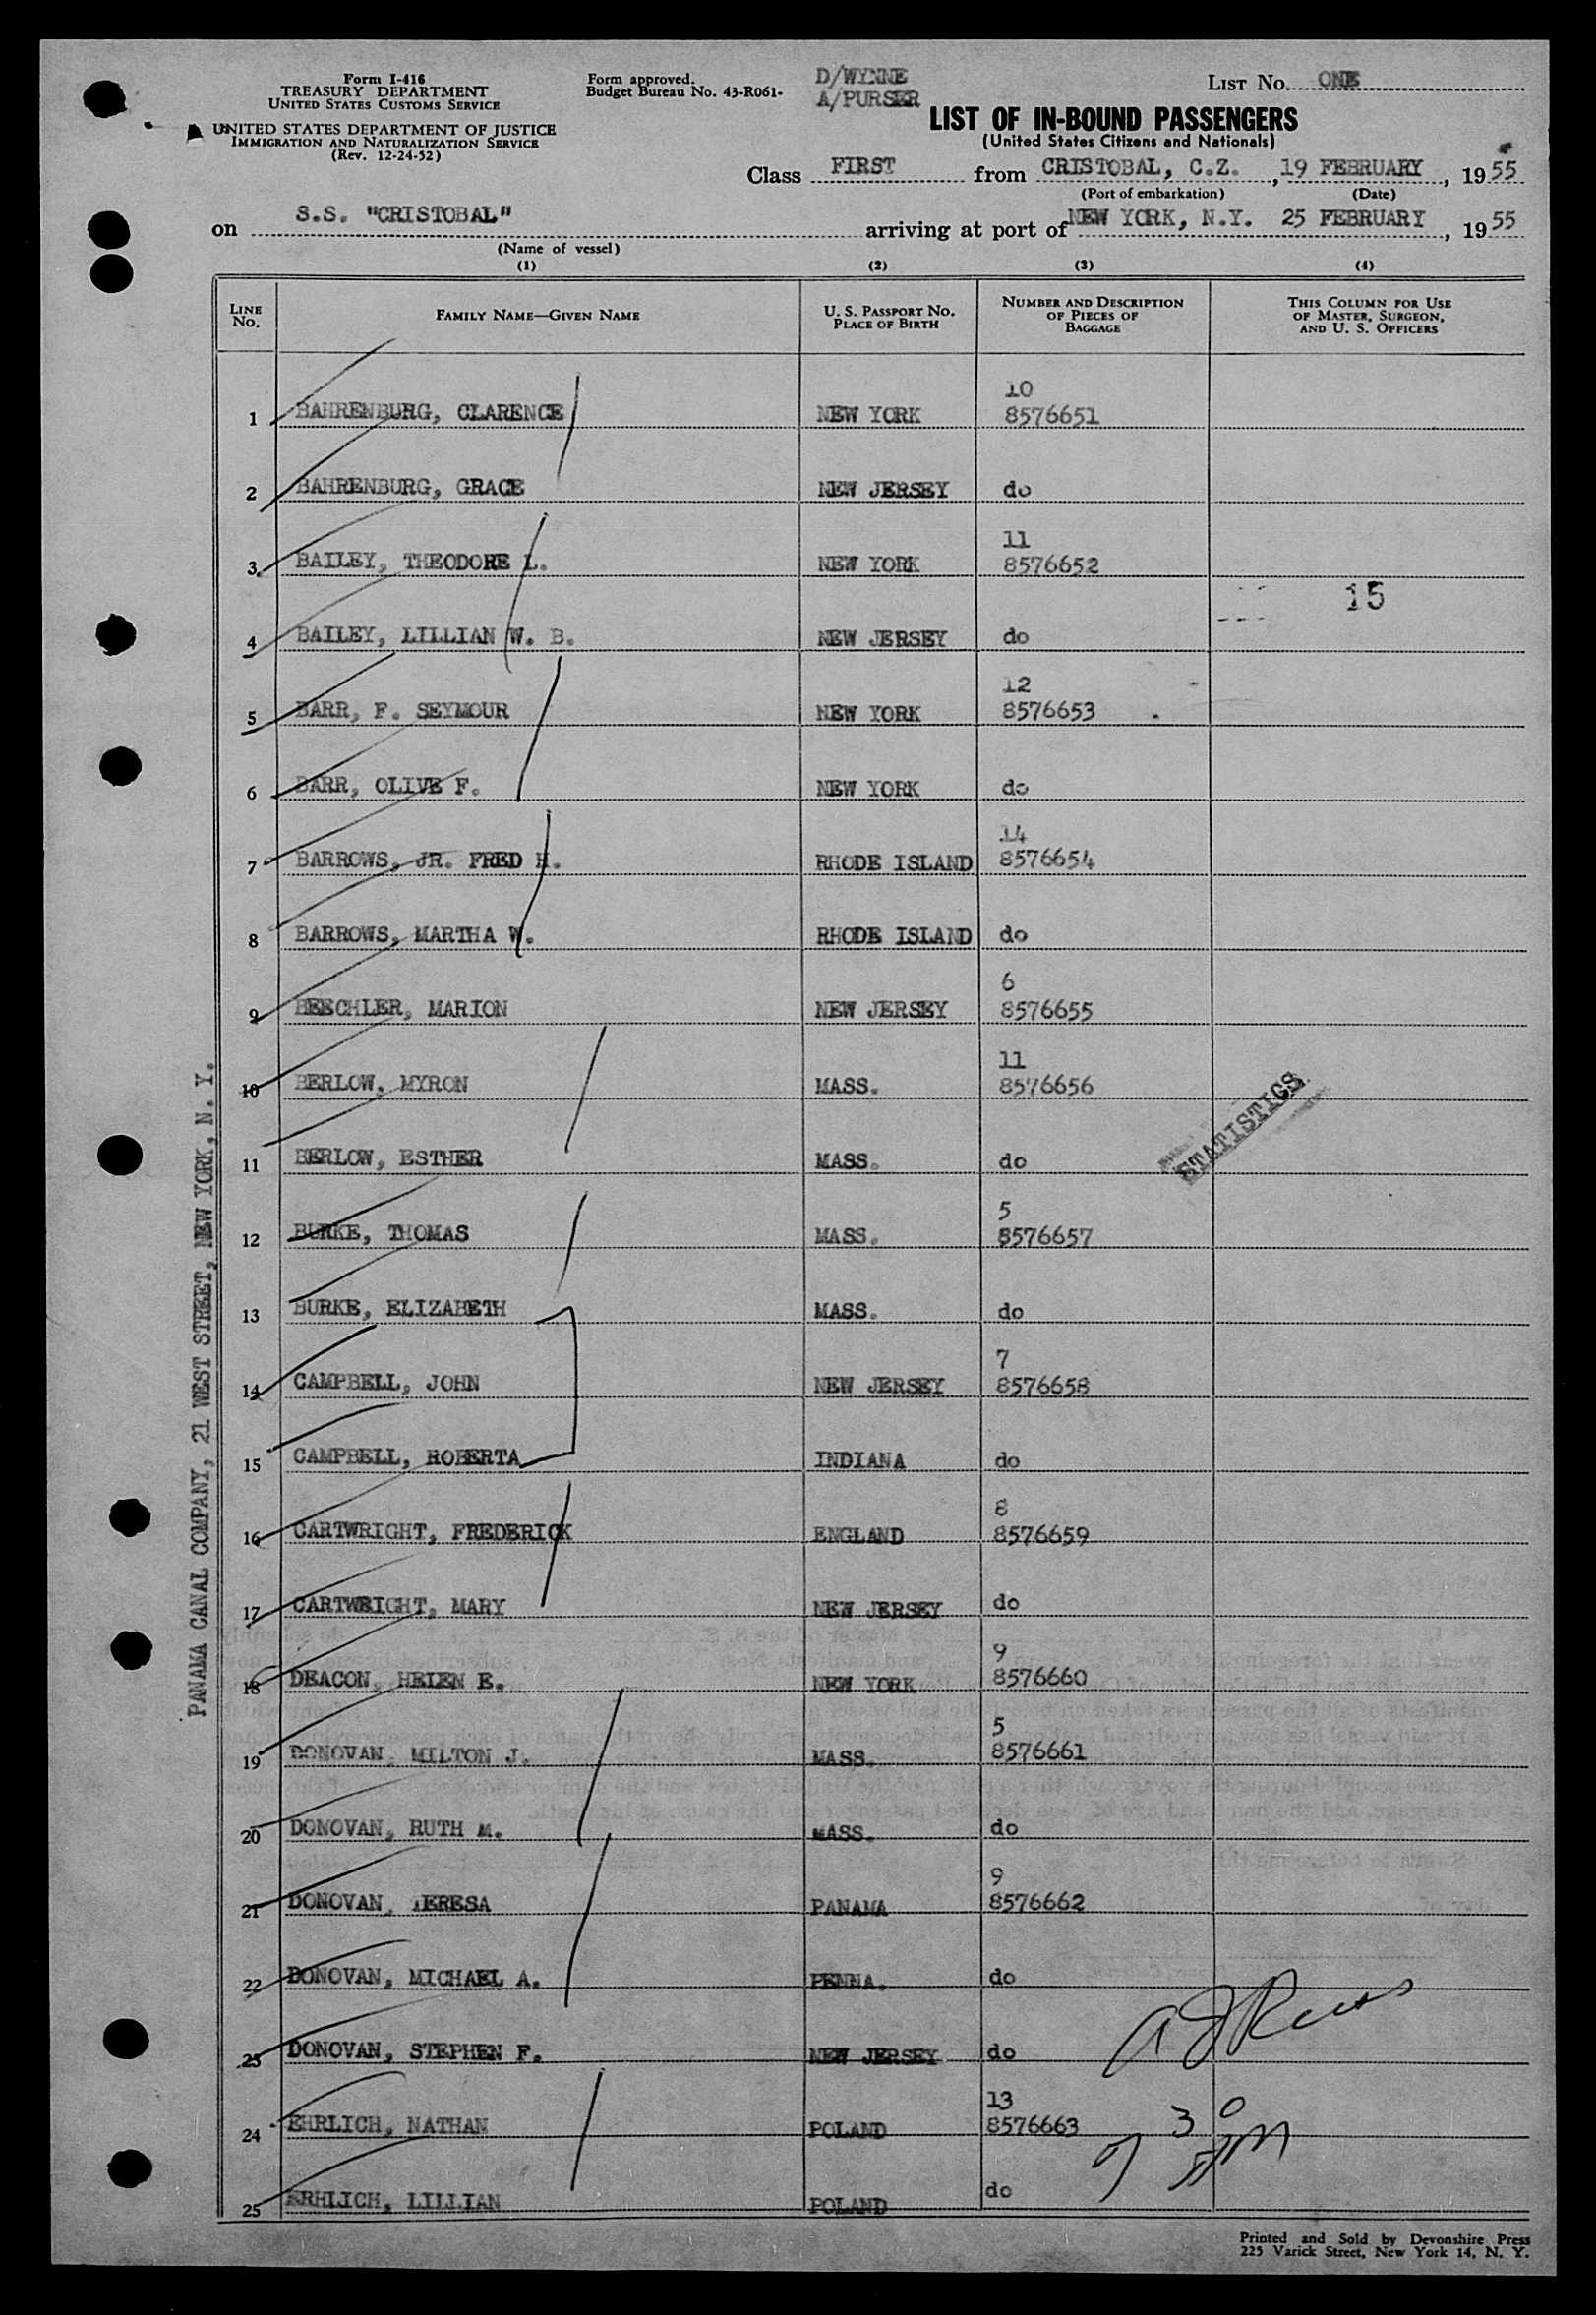 Form I-416
TREASURY DEPARTMENT
UNITED STATES CUSTOMS SERVICE
UNITED STATES DEPARTMENT OF JUSTICE
IMMIGRATION AND NATURALIZATION SERVICE
(Rev. 12-24-52)
Form approved.
Budget Bureau No. 43-R061-
D/WYNNE
A/PURSER
LIST NO. ONE
LIST OF IN-BOUND PASSENGERS
(United States Citizens and Nationals)
Class FIRST from CRISTOBAL, C.Z., 19 FEBRUARY, 1955
(Port of embarkation) (Date)
on S.S. "CRISTOBAL" arriving at port of NEW YORK, N.Y. 25 FEBRUARY, 1955
(Name of vessel)
(1) (2) (3) (4)
LINE NO. FAMILY NAME—GIVEN NAME U. S. PASSPORT NO. PLACE OF BIRTH NUMBER AND DESCRIPTION OF PIECES OF BAGGAGE THIS COLUMN FOR USE OF MASTER, SURGEON, AND U. S. OFFICERS
10
1 BAHRENBURG, CLARENCE NEW YORK 8576651
2 BAHRENBURG, GRACE NEW JERSEY do
11
3 BAILEY, THEODORE L. NEW YORK 8576652
15
4 BAILEY, LILLIAN W. B. NEW JERSEY do
12
5 BARR, F. SEYMOUR NEW YORK 8576653
6 BARR, OLIVE F. NEW YORK do
14
7 BARROWS, JR. FRED H. RHODE ISLAND 8576654
8 BARROWS, MARTHA W. RHODE ISLAND do
6
9 BEECHLER, MARION NEW JERSEY 8576655
11
10 BERLOW, MYRON MASS. 8576656
STATISTICS
11 BERLOW, ESTHER MASS. do
5
12 BURKE, THOMAS MASS. 8576657
13 BURKE, ELIZABETH MASS. do
7
14 CAMPBELL, JOHN NEW JERSEY 8576658
15 CAMPBELL, ROBERTA INDIANA do
8
16 CARTWRIGHT, FREDERICK ENGLAND 8576659
17 CARTWRIGHT, MARY NEW JERSEY do
9
18 DEACON, HELEN E. NEW YORK 8576660
5
19 DONOVAN, MILTON J. MASS. 8576661
20 DONOVAN, RUTH M. MASS. do
9
21 DONOVAN, TERESA PANAMA 8576662
22 DONOVAN, MICHAEL A. PENNA. do
23 DONOVAN, STEPHEN F. NEW JERSEY do
13
24 EHRLICH, NATHAN POLAND 8576663
25 ERHLICH, LILLIAN POLAND do
PANAMA CANAL COMPANY, 21 WEST STREET, NEW YORK, N. Y.
Printed and Sold by Devonshire Press
225 Varick Street, New York 14, N. Y.